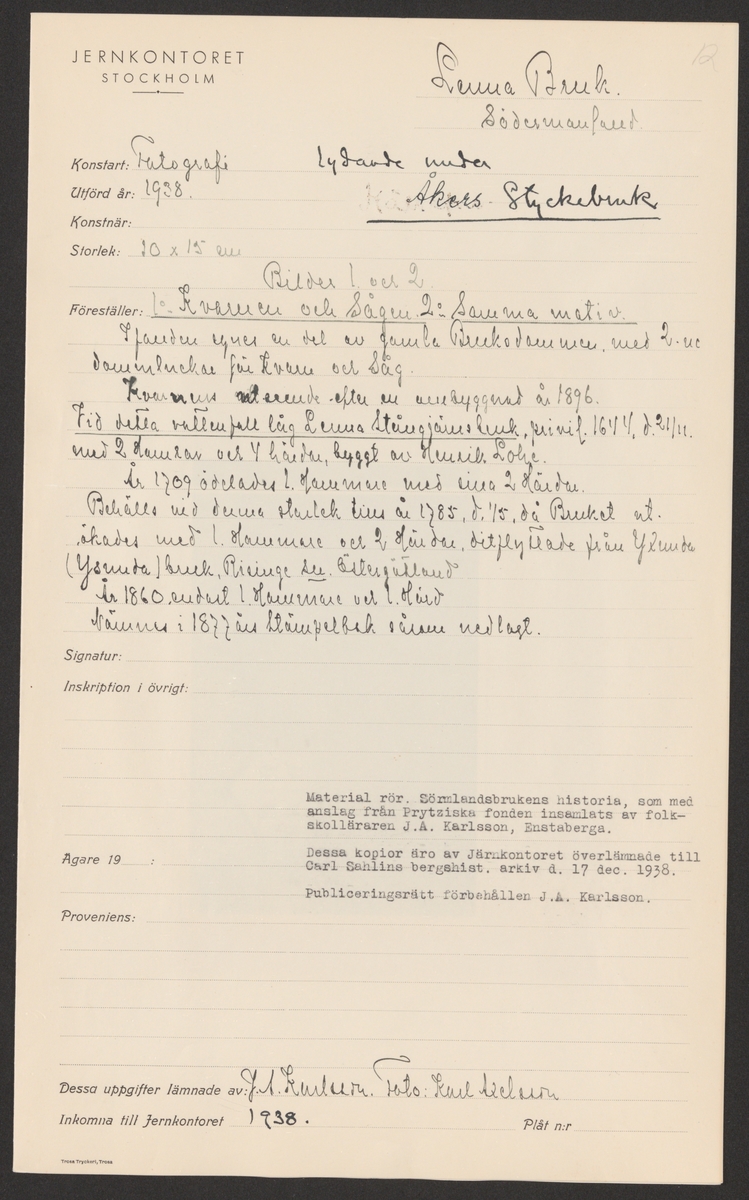 12
JERNKONTORET
STOCKHOLM
Lenna Bruk.
Södermanland
Konstart: Fotografi lydande under
Utförd år: 1938. Åkers Styckebruk
Konstnär:
Storlek: 10 x 15 cm
Bilder 1 och 2.
Föreställer: 1: Kvarnen och Sågen. 2: Samma motiv.
I fonden synes en del av gamla Bruksdammen, med 2-ne
dammluckor för Kvarn och Såg.
Kvarnens utseende efter en ombyggnad år 1896.
Vid detta vattenfall låg Lenna Stångjärnsbruk, privil. 1644, d. 21/11.
med 2 Hamrar och 4 härdar, byggt av Henrik Lohe.
År 1709 ödelades 1. Hammare med sina 2 Härdar.
Behölls vid denna storlek tins år 1785, d. 4/5, då Bruket ut-
ökades med 1. Hammare och 2 Härdar, ditflyttade från Yxunda
(Ysunda) bruk, Risinge sn. Östergötland
År 1860, endast 1. Hammare och 1. Härd
Nämnes i 1877 års Stämpelbok såsom nedlagt.
Signatur:
Inskription i övrigt:
Material rör. Sörmlandsbrukens historia, som med
anslag från Prytziska fonden insamlats av folk-
skolläraren J.A. Karlsson, Enstaberga.
Ägare 19 : Dessa kopior äro av Järnkontoret överlämnade till
Carl Sahlins bergshist. arkiv d. 17 dec. 1938.
Publiceringsrätt förbehållen J.A. Karlsson.
Proveniens:
Dessa uppgifter lämnade av: J. A. Karlsson. Foto: Karl Axelsson
Inkomna till Jernkontoret 1938. Plåt n:r
Trosa Tryckeri, Trosa